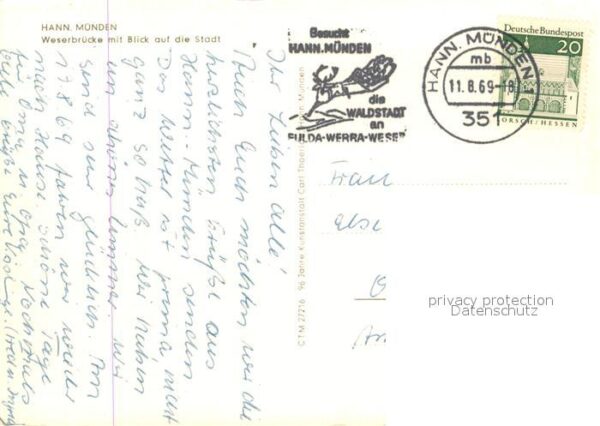 HANN. MÜNDEN
Weserbrücke mit Blick auf die Stadt
Besucht
HANN.MÜNDEN
die
WALDSTADT
an
FULDA-WERRA-WESER
HANN. MÜNDEN 1
mb
11.8.69-18
351
Deutsche Bundespost
20
LORSCH/HESSEN
Ihr Lieben alle!
Auch Euch möchten wir die
herzlichsten Grüße aus
Hann.-Münden senden
Das Wetter ist prima nicht
ganz so heiß. Wir haben
ein schönes Zimmer. Wir
sind sehr glücklich. Am
17.8.69 fahren wir wieder
nach Hause. Schöne Tage
für Omi u. Opa. Nochmals
viele Grüße Eure
CTM 27216 96 Jahre Kunstanstalt Carl
Münden
Frau
Else
privacy protection
Datenschutz